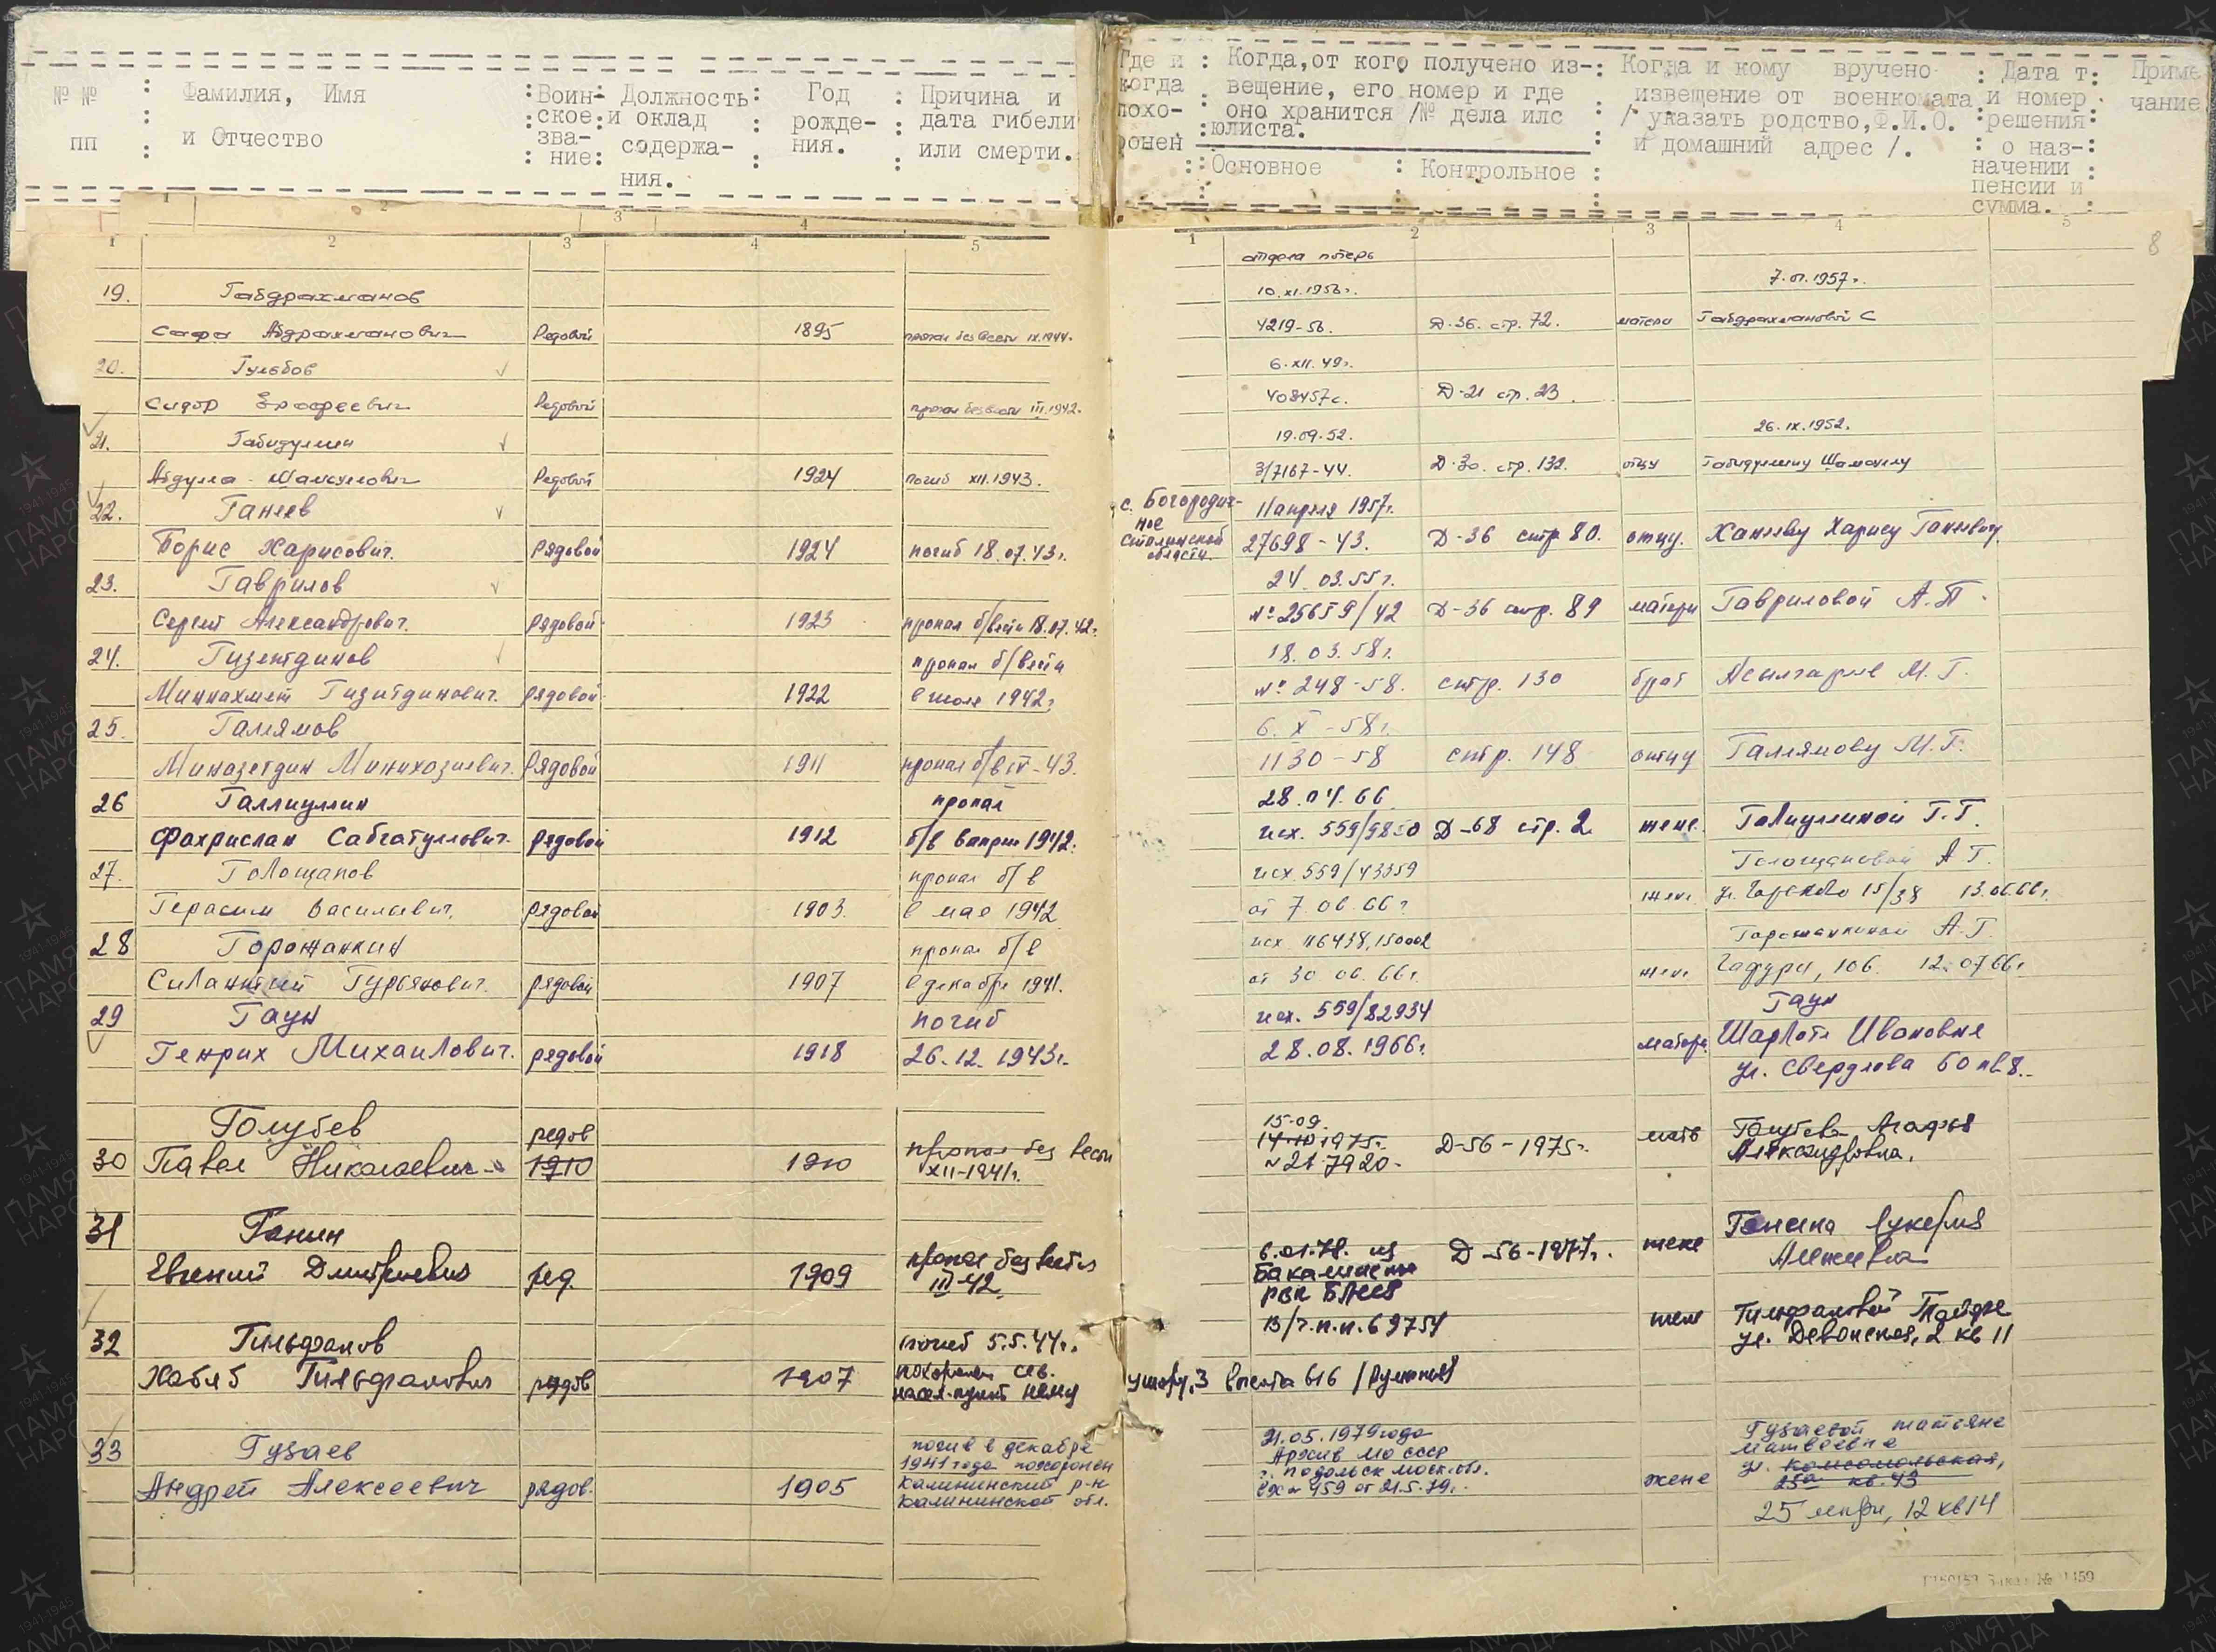 № №
пп
Фамилия, Имя
и Отчество
Воин-
ское
зва-
ние:
Должность
и оклад
содержа-
ния.
Год
рожде-
ния.
Причина и
дата гибели
или смерти.
Где и
когда
похо-
ронен
Когда, от кого получено из-
вещение, его номер и где
оно хранится /№ дела илс
юлиста.
Основное : Контрольное :
Когда и кому вручено
извещение от военкомата
/ указать родство, Ф.И.О.
и домашний адрес /.
Дата т
и номер
решения
о наз-
начении
пенсии и
сумма.
Приме
чание
1 2 3 4 5
1 2 3 4 5
8
отдела потерь
19. Габдрахманов 10.XI.1956г. 7.01.1957г.
Сафа Абдрахманович Рядовой 1895 пропал без вести IX.1944. 4219-56. Д-36. стр. 72. матери Габдрахмановой С
20. 6.XII.49г.
Сидор Рядовой пропал без вести III.1942. 408457с. Д-21 стр. 23.
21. Габидуллин 19.09.52. 26.IX.1952.
Абдулла Шамсулович Рядовой 1924 погиб XII.1943. 3/7167-44. Д-30. стр. 132. отцу Габидуллину
22. Ганеев с. Богородич-
ное
Сталинской
области. 11 апреля 1957г.
Борис Харисович. Рядовой 1924 погиб 18.07.43г. 27698-43. Д-36 стр 80. отцу. Ханееву Харису Ганеевичу
23. Гаврилов 24.03.55г.
Сергей Александрович. рядовой 1923 пропал б/вести 18.07.42г. №25659/42 Д-36 стр. 89 матери Гавриловой А.П.
24. Гизетдинов пропал б/вести 18.03.58г.
Миннахмет Гизитдинович. рядовой 1922 в июле 1942г. №248-58. стр. 130 брат Асылгареев М.Г.
25. Галлямов 6.X-58г.
Рядовой 1911 пропал б/в IV-43. 1130-58 стр. 148 отцу Галлямову М.Г.
26 Галлиуллин пропал 28.04.66
Фахрислан Сабгатуллович. рядовой 1912 б/в в апреле 1942. исх. 559/9850 Д-68 стр. 2. жене. Галиуллиной Г.Г.
27. Голощапов пропал б/в исх 559/43359 Голощаповой А Г.
Герасим Васильевич. рядовой 1903. в мае 1942 от 7.06.66г жене. ул. Горького 15/38 13.06.66г.
28 Горожанкин пропал б/в исх 116438,150002 Горожанкиной А.Г.
Силантий Гурьянович. рядовой 1907 в декабре 1941. от 30 06.66г. жене Чадура, 106. 12.07 66г
29 Гаун погиб исх. 559/82934 Гаун
Генрих Михайлович. рядовой 1918 26.12.1943г. 28.08.1966г. матери Шарлоте Ивановне
ул. Свердлова 60 кв 8.
Голубев рядов 15-09.
30 Павел Николаевич 1910 1910 пропал без вести
XII-1941г. 14-10 1975г.
№21-7920. Д-56-1975г. мать Голубева Агафья
Александровна.
31 Ганин Ганина Лукерия
Евгений Дмитриевич ряд. 1909 пропал без вести
III-42. 6.01.78. из
Бакалинского
РВК БАССР Д-56-1977г. жене
32 Гильфанов погиб 5.5.44г. В/ч.п.п.69754 жене Гильфановой
ул. Девонская, 2 кв 11
Хабяб Гильфанович рядов 1907 похоронен сев.
насел.пункт высота 616 /Румыния/
33 Гузаев погиб в декабре
1941 года похоронен
Калининский р-н
Калининской обл. 21.05.1979 года
Архив МО СССР
г. Подольск моск.обл.
вх № 459 от 21.5.79г. Гузаевой татьяне
матвеевне
ул. Комсомольская,
25а кв. 43
Андрей Алексеевич рядов. 1905 жене 25 12 кв 14